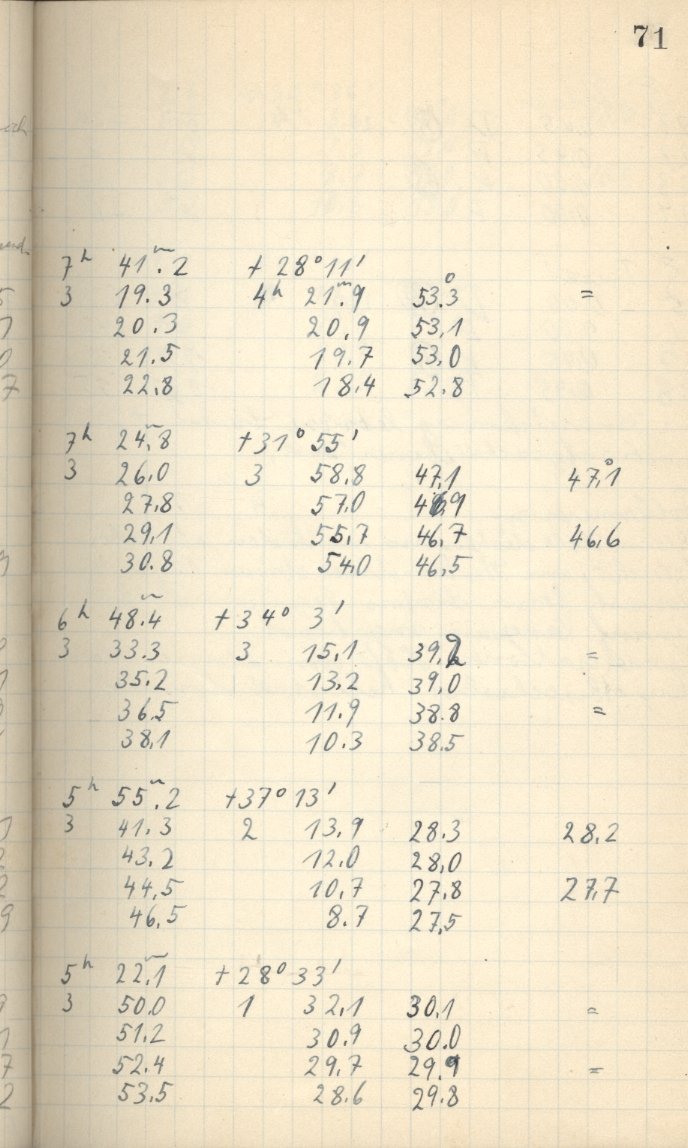 71
7ʰ 41ᵐ.2 +28°11'
3 19.3 4ʰ 21ᵐ.9 53°.3 =
20.3 20.9 53.1
21.5 19.7 53.0
22.8 18.4 52.8
7ʰ 24ᵐ.8 +31°55'
3 26.0 3 58.8 47.1 47°.1
27.8 57.0 46.9
29.1 55.7 46.7 46.6
30.8 54.0 46.5
6ʰ 48ᵐ.4 +34° 3'
3 33.3 3 15.1 39.2 =
35.2 13.2 39.0
36.5 11.9 38.8 =
38.1 10.3 38.5
5ʰ 55ᵐ.2 +37°13'
3 41.3 2 13.9 28.3 28.2
43.2 12.0 28.0
44.5 10.7 27.8 27.7
46.5 8.7 27.5
5ʰ 22ᵐ.1 +28°33'
3 50.0 1 32.1 30.1 =
51.2 30.9 30.0
52.4 29.7 29.9 =
53.5 28.6 29.8